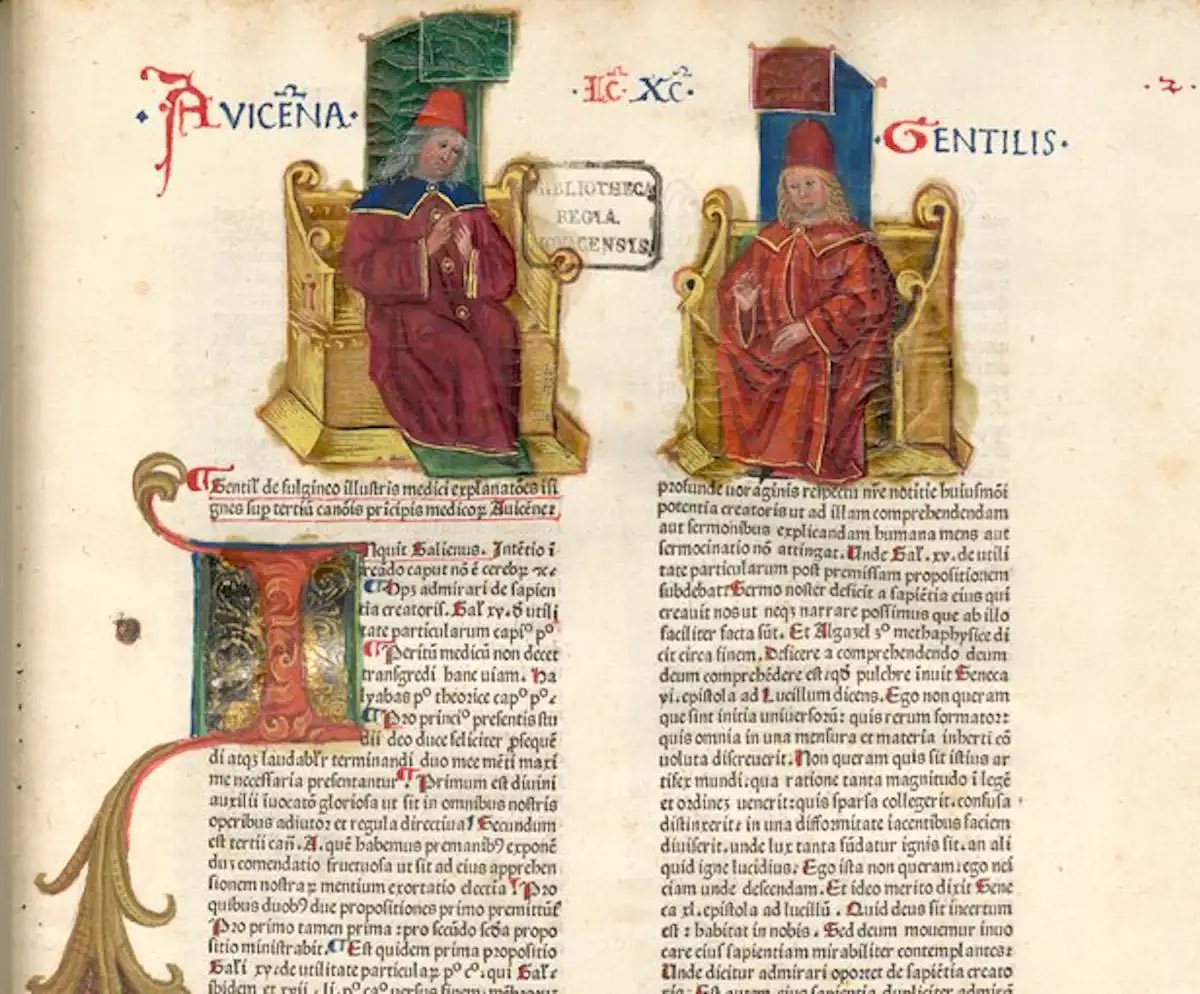 AVICEÑA
LC̃ XC̃
GENTILIS
2
BIBLIOTHECA
REGIA
MONACENSIS
Gentil' de fulgineo illustris medici explanatões isi
gnes sup tertiũ canõis prĩcipis medicoꝝ Auicẽne
INquit Galienus. Intẽtio ĩ
creãdo caput nõ ẽ cerebꝝ
admirari de sapien
tia creatoris. Gal' xv. ð utili
tate particularum capi⁰ p⁰
Peritũ medicũ non decet
transgredi hanc uiam. Ha
lyabas p⁰ theorice cap⁰ p⁰
Pro princi⁰ presentis stu
dii deo duce feliciter ꝓsequẽ
di atqꝫ laudabl'r terminandi duo mee mẽti maxi
me necessaria presentantur Primum est diuini
auxilii iuocatõ gloriosa ut sit in omnibus nostris
operibus adiutor et regula directiua Secundum
est tertii cañ. A. quẽ habemus premanibꝰ exponẽ
dum comendatio fructuosa ut sit ad eius apprehen
sionem nostraꝝ mentium exortatio electia Pro
quibus duobꝰ due propositiones primo premittũt
Pro primo tamen prima: pro secũdo scða propo
sitio ministrabit. Est quidem prima propositio
Gal'i xv. de utilitate particulaꝝ p⁰ c⁰. qui Gal'e
ibidem et xvii. li. p⁰ ca⁰ versus finem
profunde uoraginis respectu nr̃e notitie huiusmõi
potentia creatoris ut ad illam comprehendendam
aut sermonibus explicandam humana mens aut
sermocinatio nõ attingat. Unde Gal'. xv. de utili
tate particularum post premissam propositionem
subdebat: Sermo noster deficit a sapiẽtia eius qui
creauit nos ut neqꝫ narrare possimus que ab illo
faciliter facta sũt. Et Algazel 3⁰ methaphysice di
cit circa finem. Deficere a comprehendendo deum
deum comprehẽdere est: qð pulchre inuit Seneca
vi. epistola ad Lucillum dicens. Ego non queram
que sint initia uniuersorũ: quis rerum formator:
quis omnia in una mensura et materia inherti cõ
uoluta discreuerit. Non queram quis sit istius ar
tifex mundi: qua ratione tanta magnitudo ĩ legẽ
et ordinẽ venerit: quis sparsa collegerit. confusa
distinxerit: in una difformitate iacentibus faciem
diuiserit. unde lux tanta fũdatur ignis sit. an ali
quid igne lucidius: Ego ista non queram: ego nes
ciam unde descendam. Et ideo merito dixit Sene
ca xl. epistola ad lucillũ. Quid deus sit incertum
est: habitat in nobis. Sed deum mouemur inuo
care eius sapientiam mirabiliter contemplantes:
Unde dicitur admirari oportet de sapiẽtia creato
ris: Est autem eius sapientia dupliciter admirã